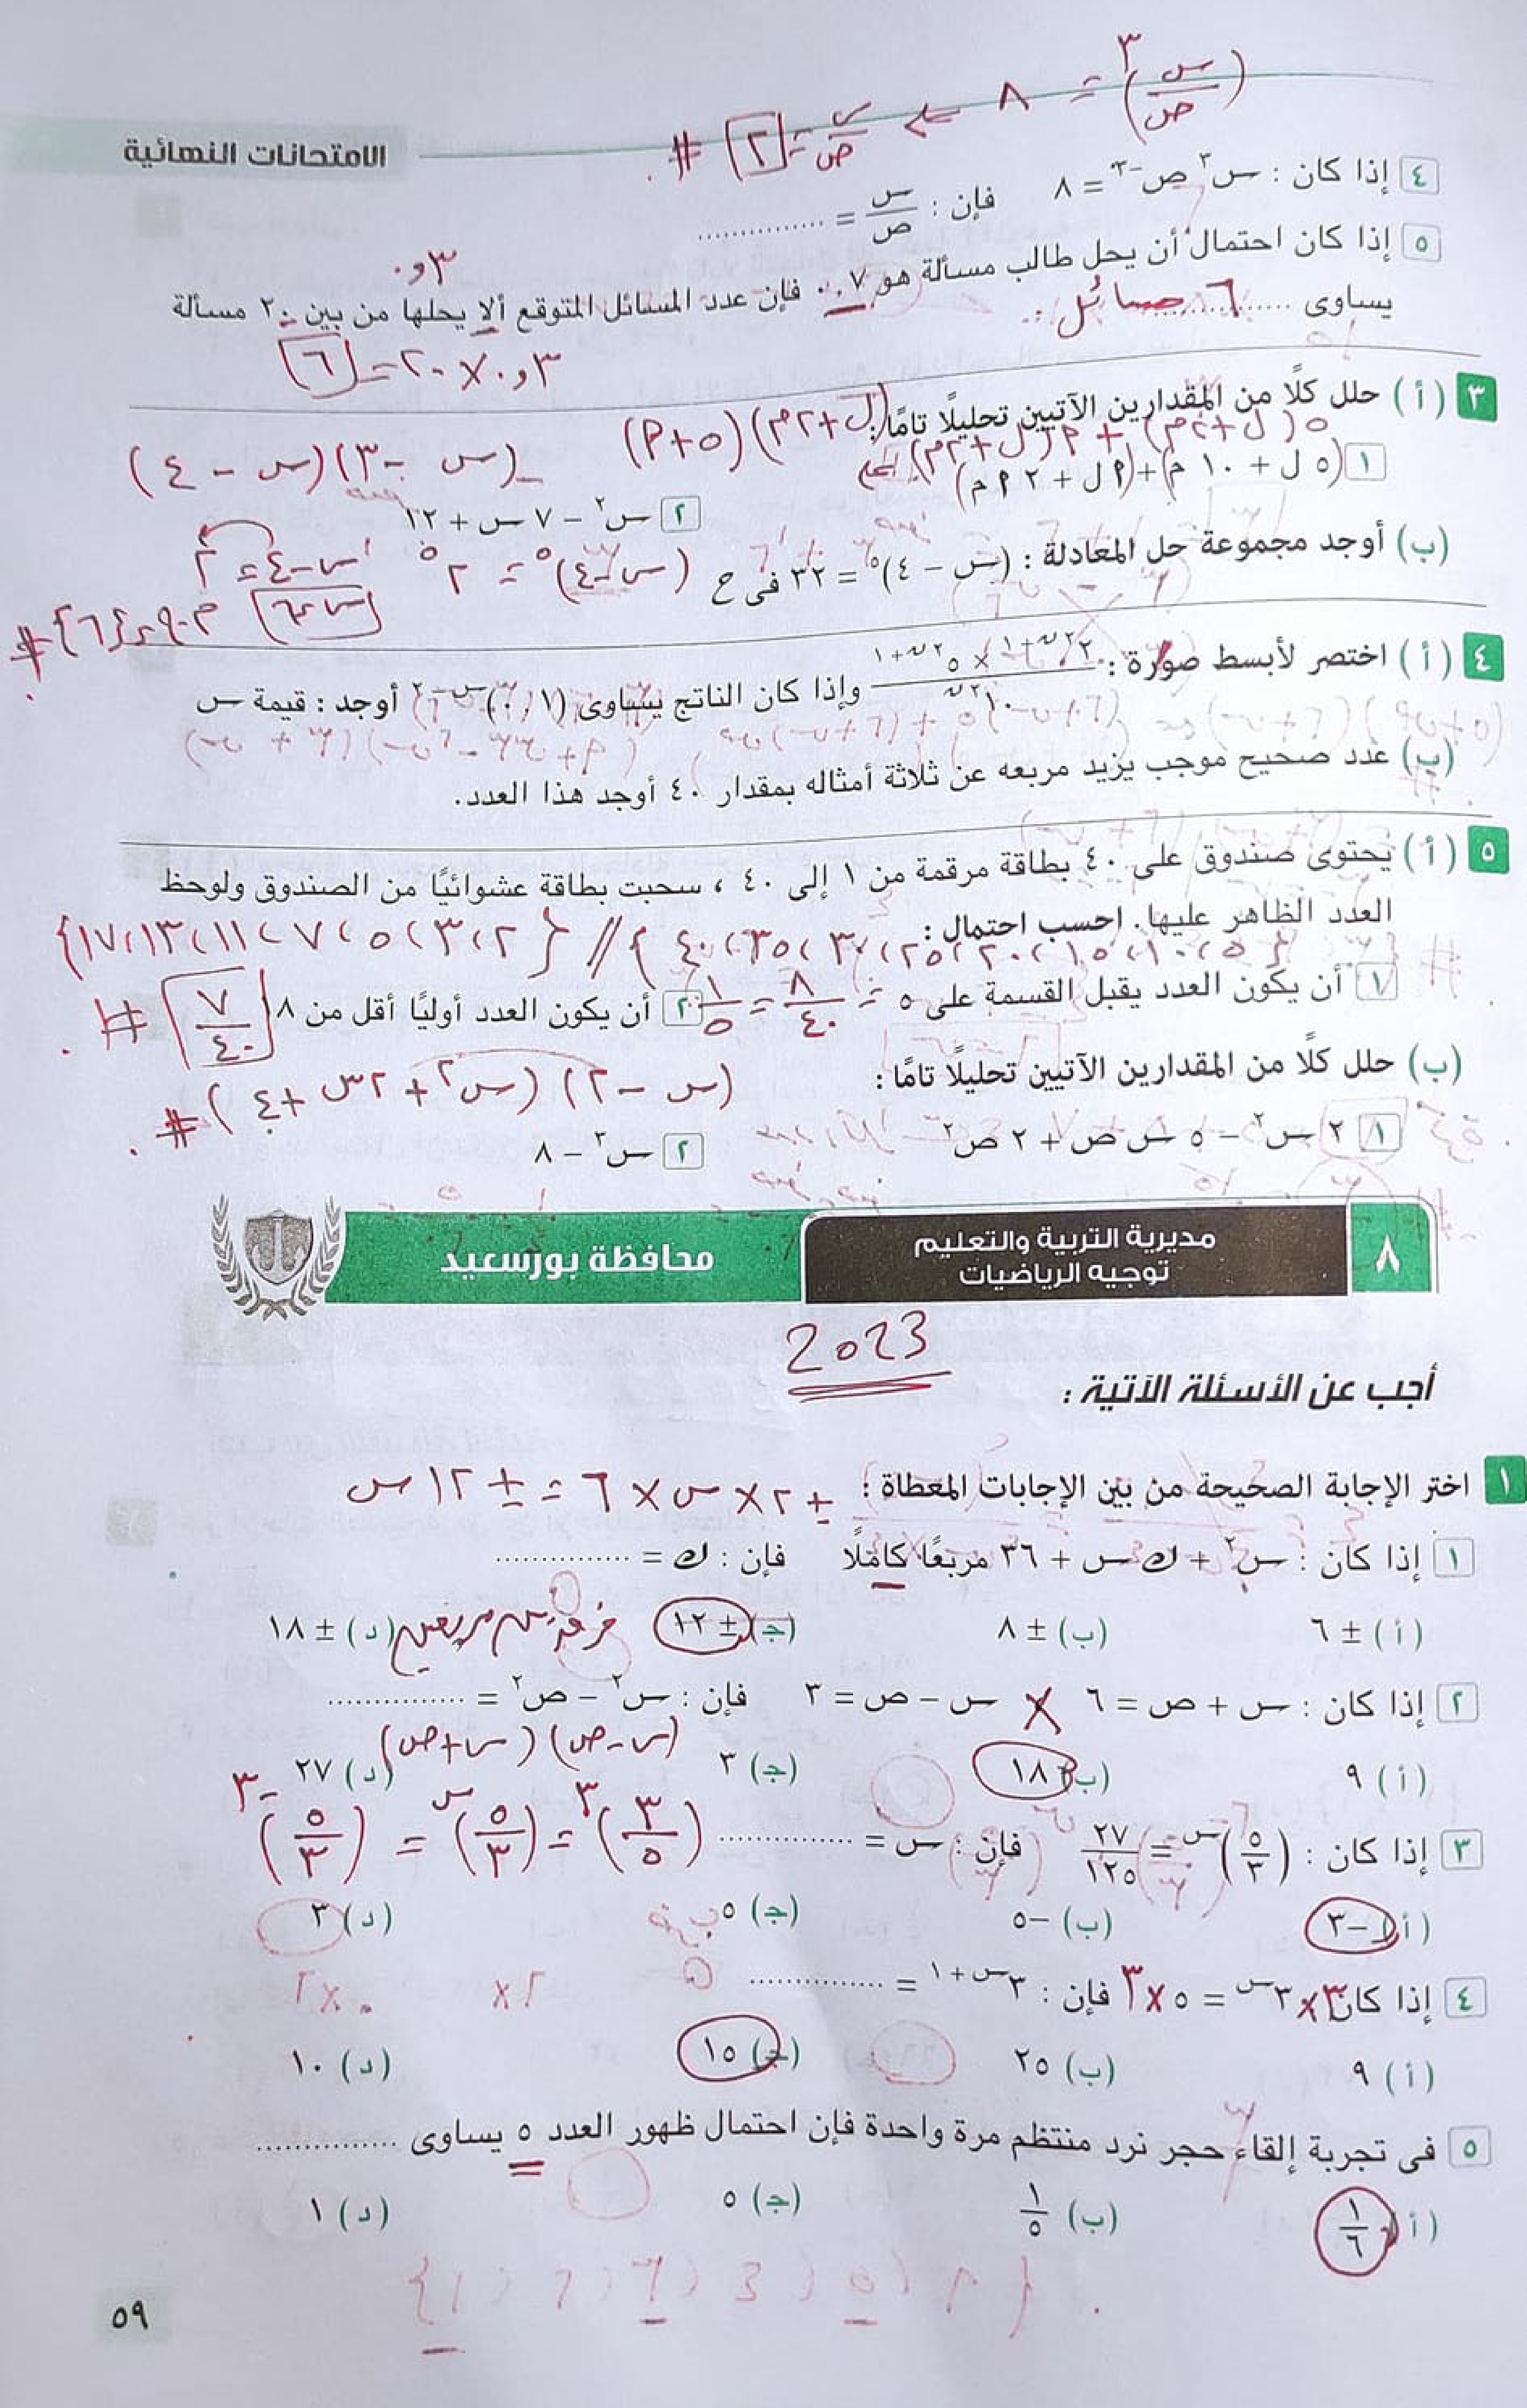 (س/ص)^٣ = ٨ ⇐ س/ص = ٢ #
الامتحانات النهائية
٤ إذا كان : س^٣ ص^-٣ = ٨ فإن : س/ص = ..............
٥ إذا كان احتمال أن يحل طالب مسألة هو ٠.٧ فإن عدد المسائل المتوقع ألا يحلها من بين ٢٠ مسألة
٠,٣
يساوى ...... ٦ مسائل
٠,٣ × ٢٠ = ٦
٣ ( أ ) حلل كلًا من المقدارين الآتيين تحليلًا تامًا :
٥(ل + ٢م) + ٩(ل + ٢م) (ل + ٢م)(٥ + ٩)
١ (٥ ل + ١٠ م) + (٩ ل + ٢ ٩ م)
(س - ٣)(س - ٤)
٢ س^٢ - ٧ س + ١٢
(ب) أوجد مجموعة حل المعادلة : (س - ٤)^٥ = ٣٢ فى ح
(س - ٤)^٥ = ٢^٥
س - ٤ = ٢
س = ٦ م.ح = {٦} #
٤ ( أ ) اختصر لأبسط صورة : (٢^(٢ن+١) × ٥^(٢ن+١)) / ١٠^(٢ن) وإذا كان الناتج يساوى (٠.١)^(س-٢) أوجد : قيمة س
(ب) عدد صحيح موجب يزيد مربعه عن ثلاثة أمثاله بمقدار ٤٠ أوجد هذا العدد.
٥ ( أ ) يحتوى صندوق على ٤٠ بطاقة مرقمة من ١ إلى ٤٠ ، سحبت بطاقة عشوائيًا من الصندوق ولوحظ
العدد الظاهر عليها. احسب احتمال :
{٥، ١٠، ١٥، ٢٠، ٢٥، ٣٠، ٣٥، ٤٠} // {٢، ٣، ٥، ٧، ١١، ١٣، ١٧}
١ أن يكون العدد يقبل القسمة على ٥ = ٨/٤٠ = ١/٥ ٢ أن يكون العدد أوليًا أقل من ١٨ ٧/٤٠ #
(ب) حلل كلًا من المقدارين الآتيين تحليلًا تامًا :
(س - ٢)(س^٢ + ٢س + ٤) #
١ ٢ س^٢ - ٥ س ص + ٢ ص^٢
٢ س^٣ - ٨
٨ مديرية التربية والتعليم
توجيه الرياضيات
محافظة بورسعيد
2023
أجب عن الأسئلة الآتية :
١ اختر الإجابة الصحيحة من بين الإجابات المعطاة :
± ٢ × س × ٦ = ± ١٢ س
١ إذا كان : س^٢ + ك س + ٣٦ مربعًا كاملًا فإن : ك = ..............
( أ ) ± ٦ (ب) ± ٨ (جـ) ± ١٢ (د) ± ١٨
٢ إذا كان : س + ص = ٦ × س - ص = ٣ فإن : س^٢ - ص^٢ = ..............
(س - ص)(س + ص)
( أ ) ٩ (ب) ١٨ (جـ) ٣ (د) ٢٧
٣ إذا كان : (٥/٣)^س = ٢٧/١٢٥ فإن : س = ..............
(٣/٥)^٣ = (٥/٣)^س = (٥/٣)^-٣
( أ ) -٣ (ب) -٥ (جـ) ٥ (د) ٣
٤ إذا كان ٣× ٣^س = ٥ ×٣ فإن : ٣^(س+١) = ..............
( أ ) ٩ (ب) ٢٥ (جـ) ١٥ (د) ١٠
٥ فى تجربة إلقاء حجر نرد منتظم مرة واحدة فإن احتمال ظهور العدد ٥ يساوى ..............
( أ ) ١/٦ (ب) ١/٥ (جـ) ٥ (د) ١
٥٩